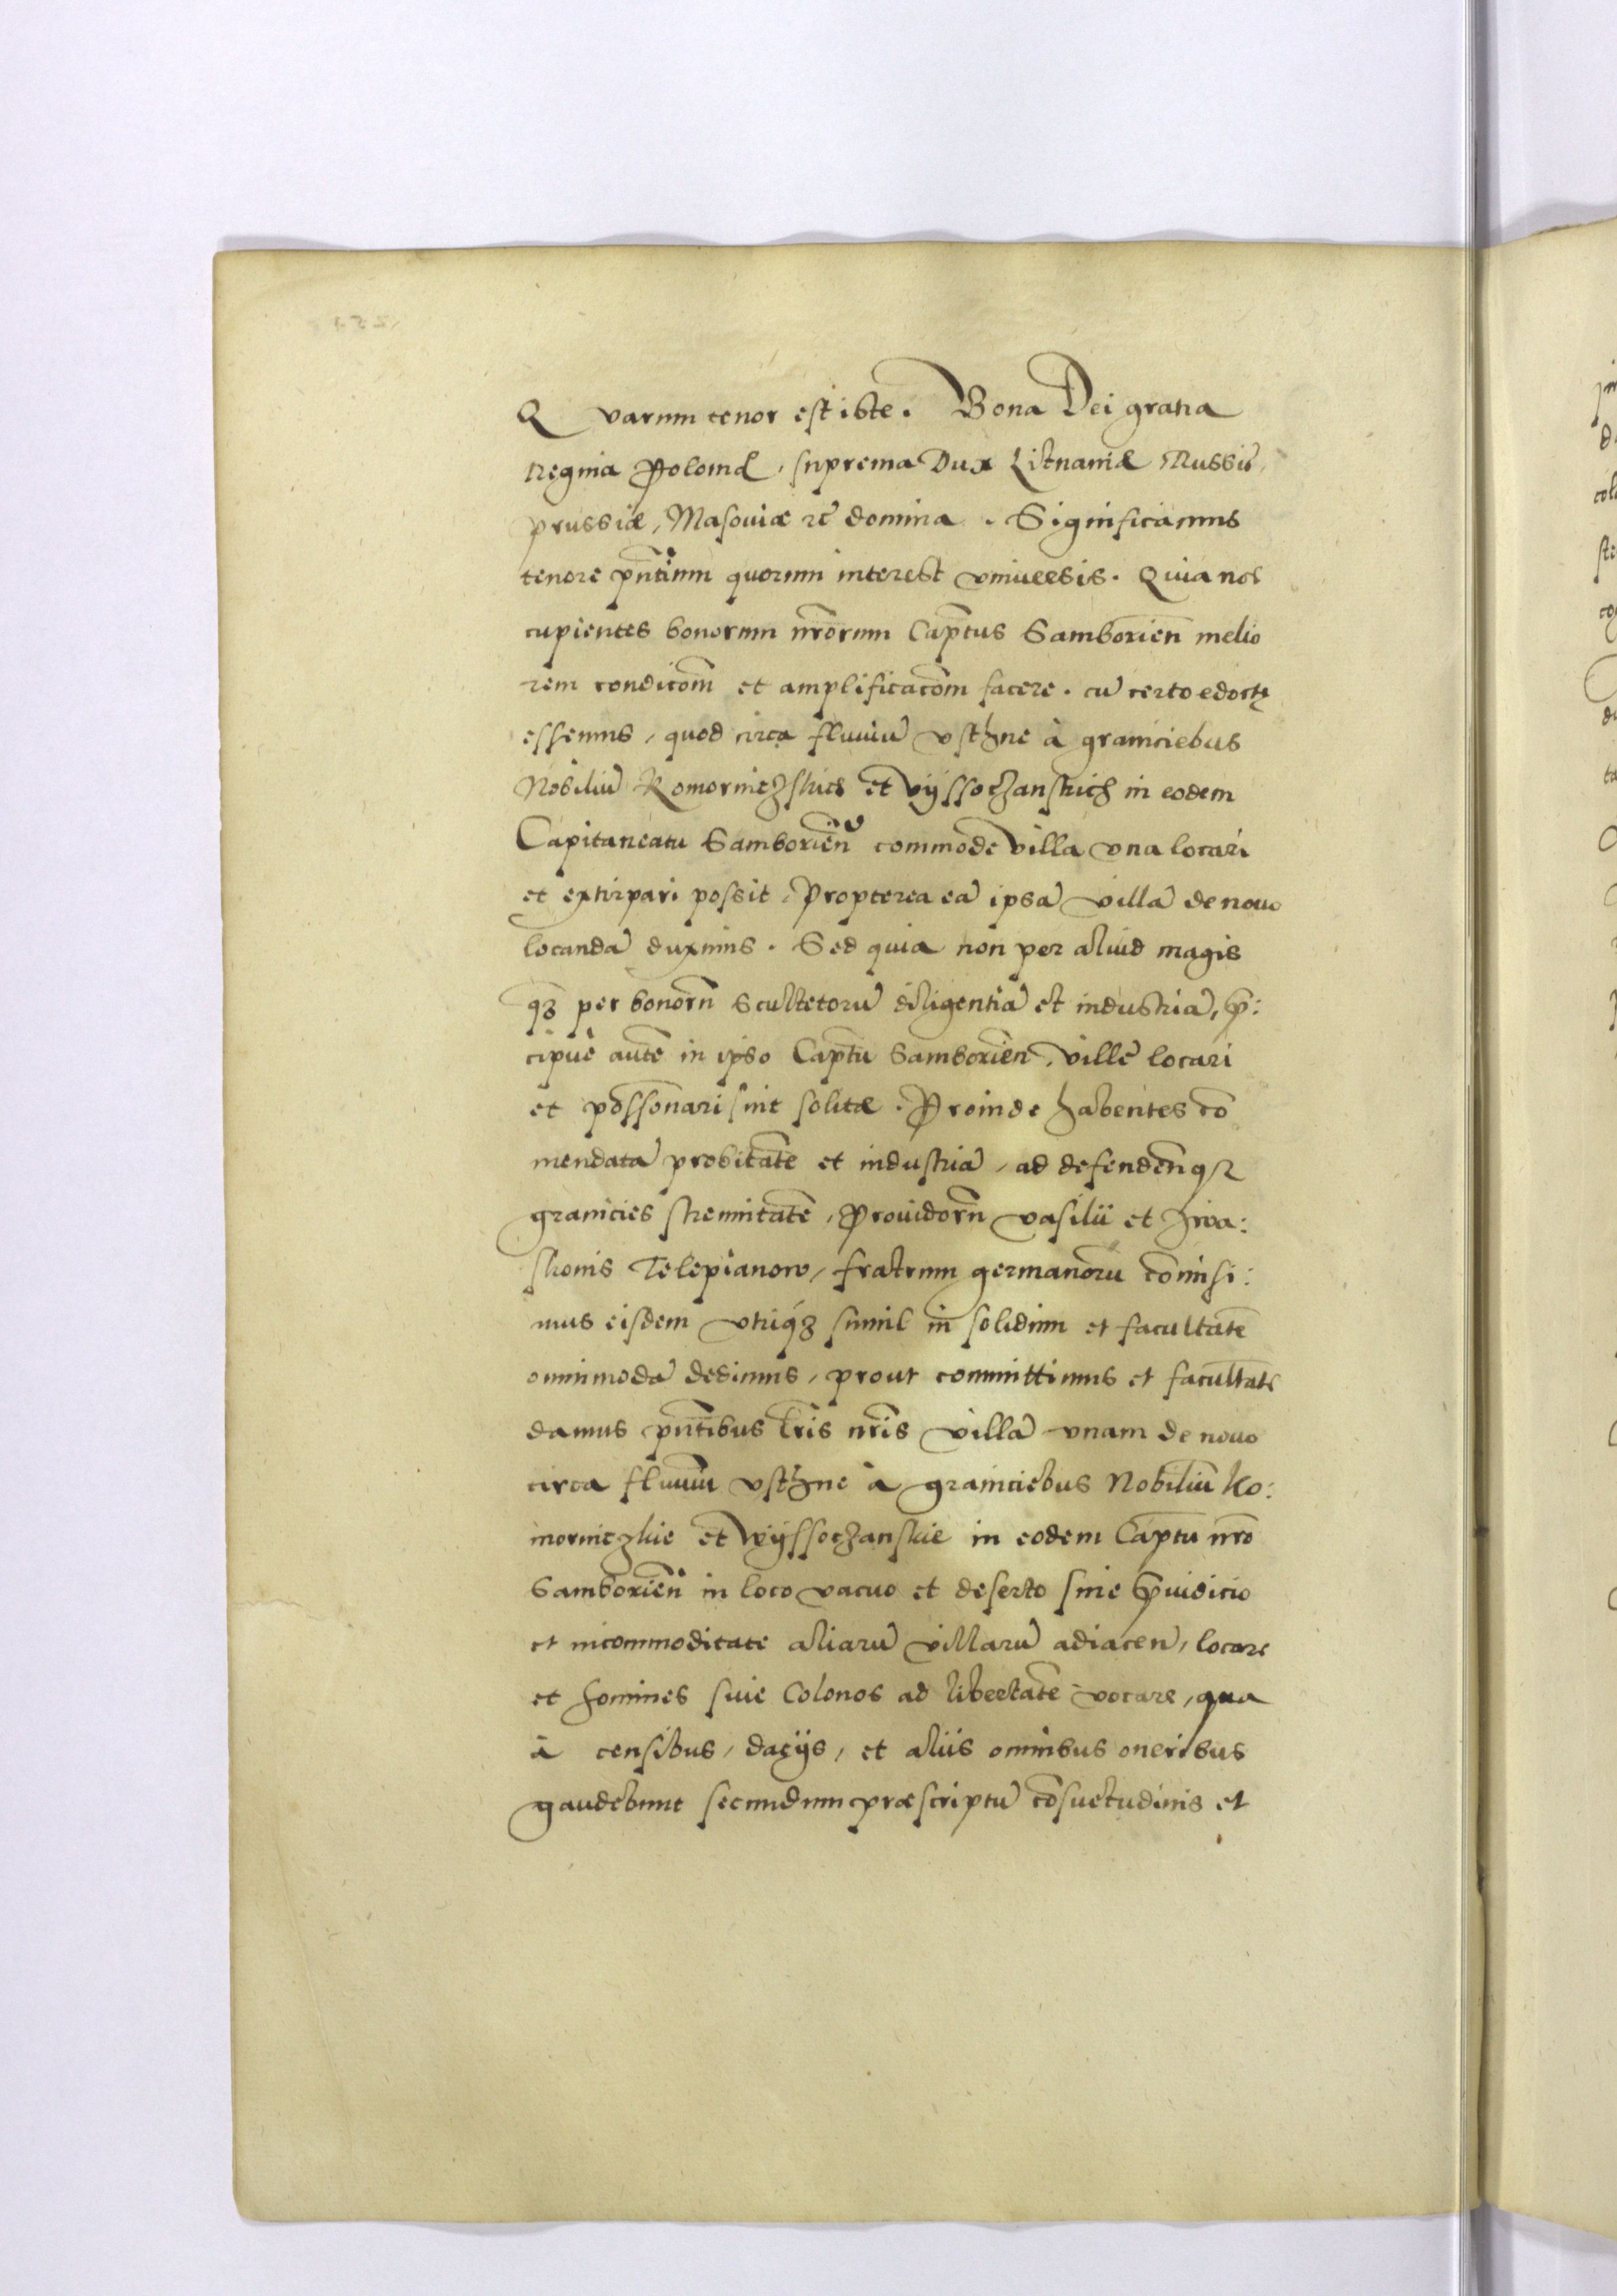 Qvarum tenor est iste. Bona Dei gratia
Regina Poloniæ, suprema Dux Lituaniæ Russiæ,
prussiæ, Masouiæ zc̃ domina. Significamus
tenore pn̄tium quorum interest vniuersis. Quia nos
cupientes bonorum nr̄orum Cap̄tus Samborien̄ melio
rem condicōm et amplificacōm facere. cū certo edocti
essemus, quod circa fluuiū vsthne à graniciebus
Nobiliū Komorniczskich et Vÿssoczanskich in eodem
Capitaneatu Samborien̄ commode villa vna locari
et extirpari possit, Propterea eā ipsā villā de nouo
locandā duximus. Sed quia non per aliud magis
qz per bonorū Scultetorū diligentiā et industriā, p̄:
cipuè autē in ipso Cap̄tu Samborien̄, villę locari
et possōnari sint solitæ. Proinde habentes cō
mendatā probitatē et industriā, ad defendenqz
granicies strenuitatē, Prouidorū vasilii et Iwa:
skonis Telepianow, fratrum germanorū cōmisi:
mus eisdem vtriqz simul in solidum et facultatē
omnimodā dedimus, prout committimus et facultatē
damus pn̄tibus lr̄is nr̄is villā vnam de nouo
circa fluuiū vsthne à graniciebus Nobiliū Ko:
morniczkie et Wÿssoczanskie in eodem Cap̄tu nr̄o
Samborien̄ in loco vacuo et deserto sine p̄iudicio
et incommoditate aliarū villarū adiacen̄, locare
et homines siue Colonos ad libertatē vocare, qua
à censibus, dacÿs, et aliis omnibus oneribus
gaudebunt secundum præscriptū cōsuetudinis et